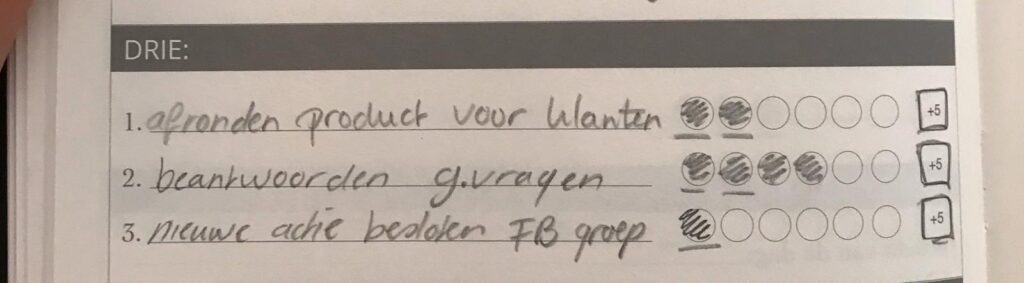 DRIE:
1. afronden product voor klanten +5
2. beantwoorden g.vragen +5
3. nieuwe actie besloten FB groep +5